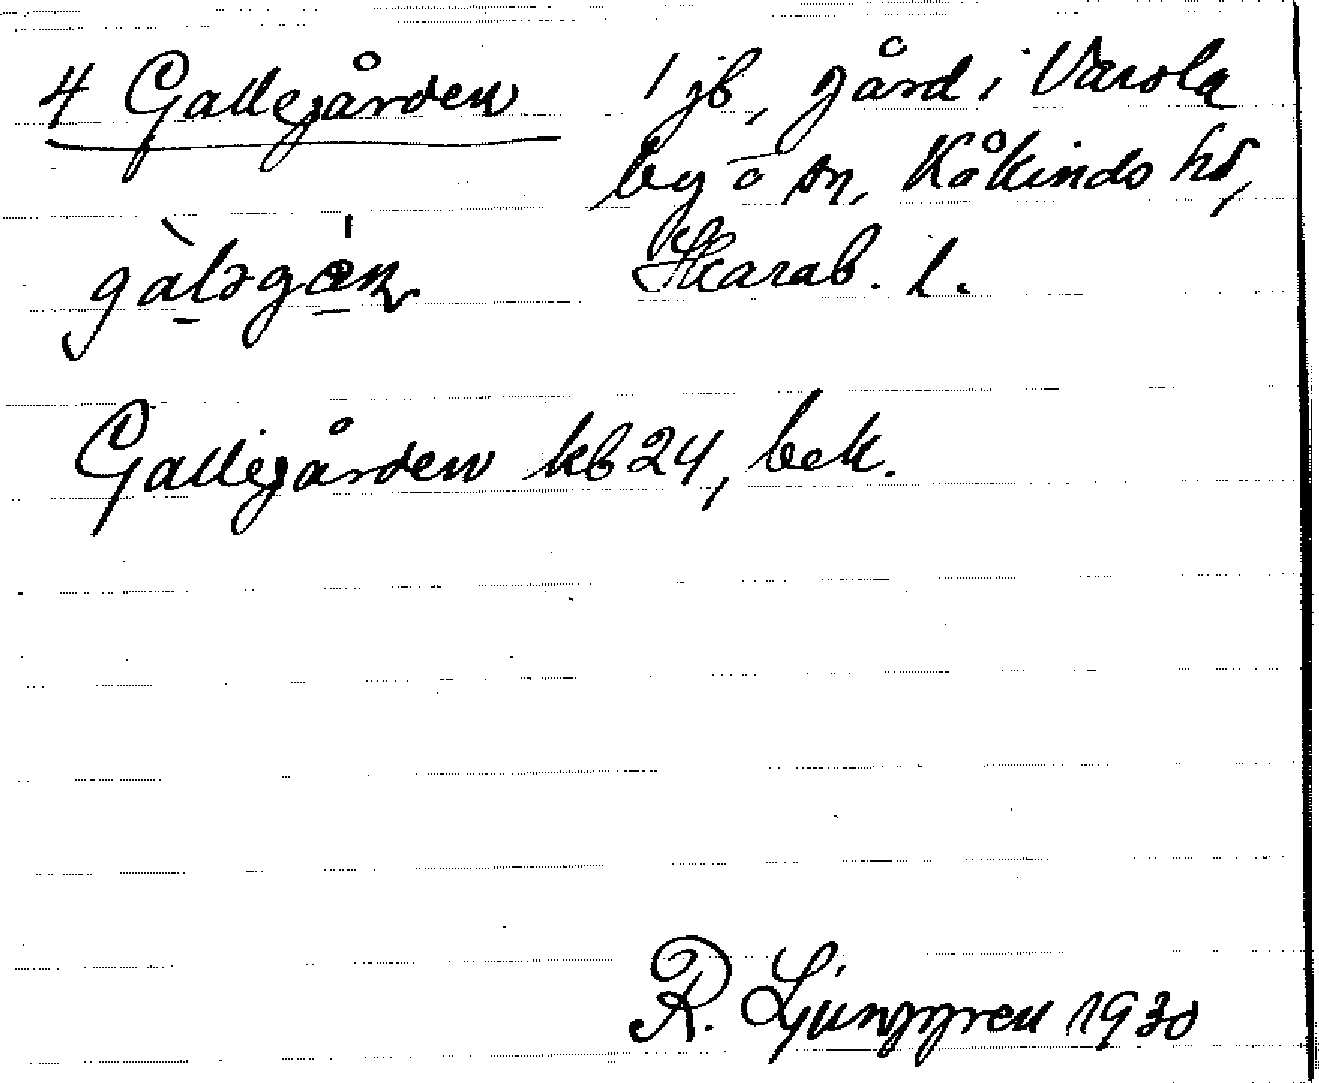 4 Gallegården 1 jb, gård i Varola
by o sn, Kåkinds hd,
Skarab. l.
Gallegården kb 24, bek.
R. Ljunggren 1930